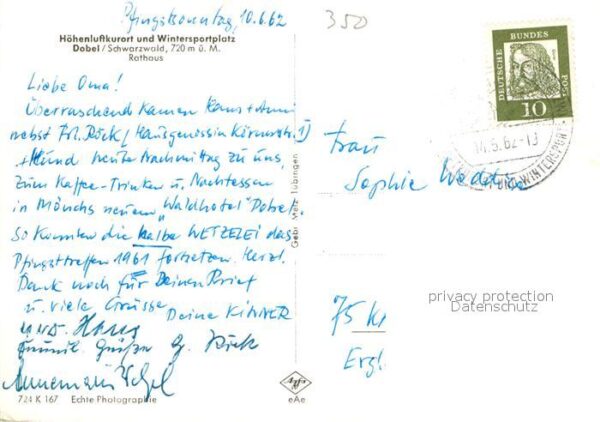 Pfingstsonntag, 10.6.62
350
Höhenluftkurort und Wintersportplatz
Dobel / Schwarzwald, 720 m ü. M.
Rathaus
Liebe Oma!
Überraschend kamen Hans + Anni
nebst Frl. Röck / Hausgenossin
+ Hund heute Nachmittag zu uns
zum Kaffee-Trinken u. Nachtessen
in Mönchs neuem "Waldhotel" Dobel.
So konnten die halbe WETZELEI das
Pfingsttreffen 1961 fortsetzen. Herzl.
Dank noch für Deinen Brief
u. viele Grüsse
Deine KINNER
Grüßen G. Röck
724 K 167 Echte Photographie
Gebr. Metz Tübingen
Agfa
eAe
DEUTSCHE BUNDESPOST
10
14.6.62-13
UND WINTERSPORT
Frau
Sophie
75 K
privacy protection
Datenschutz